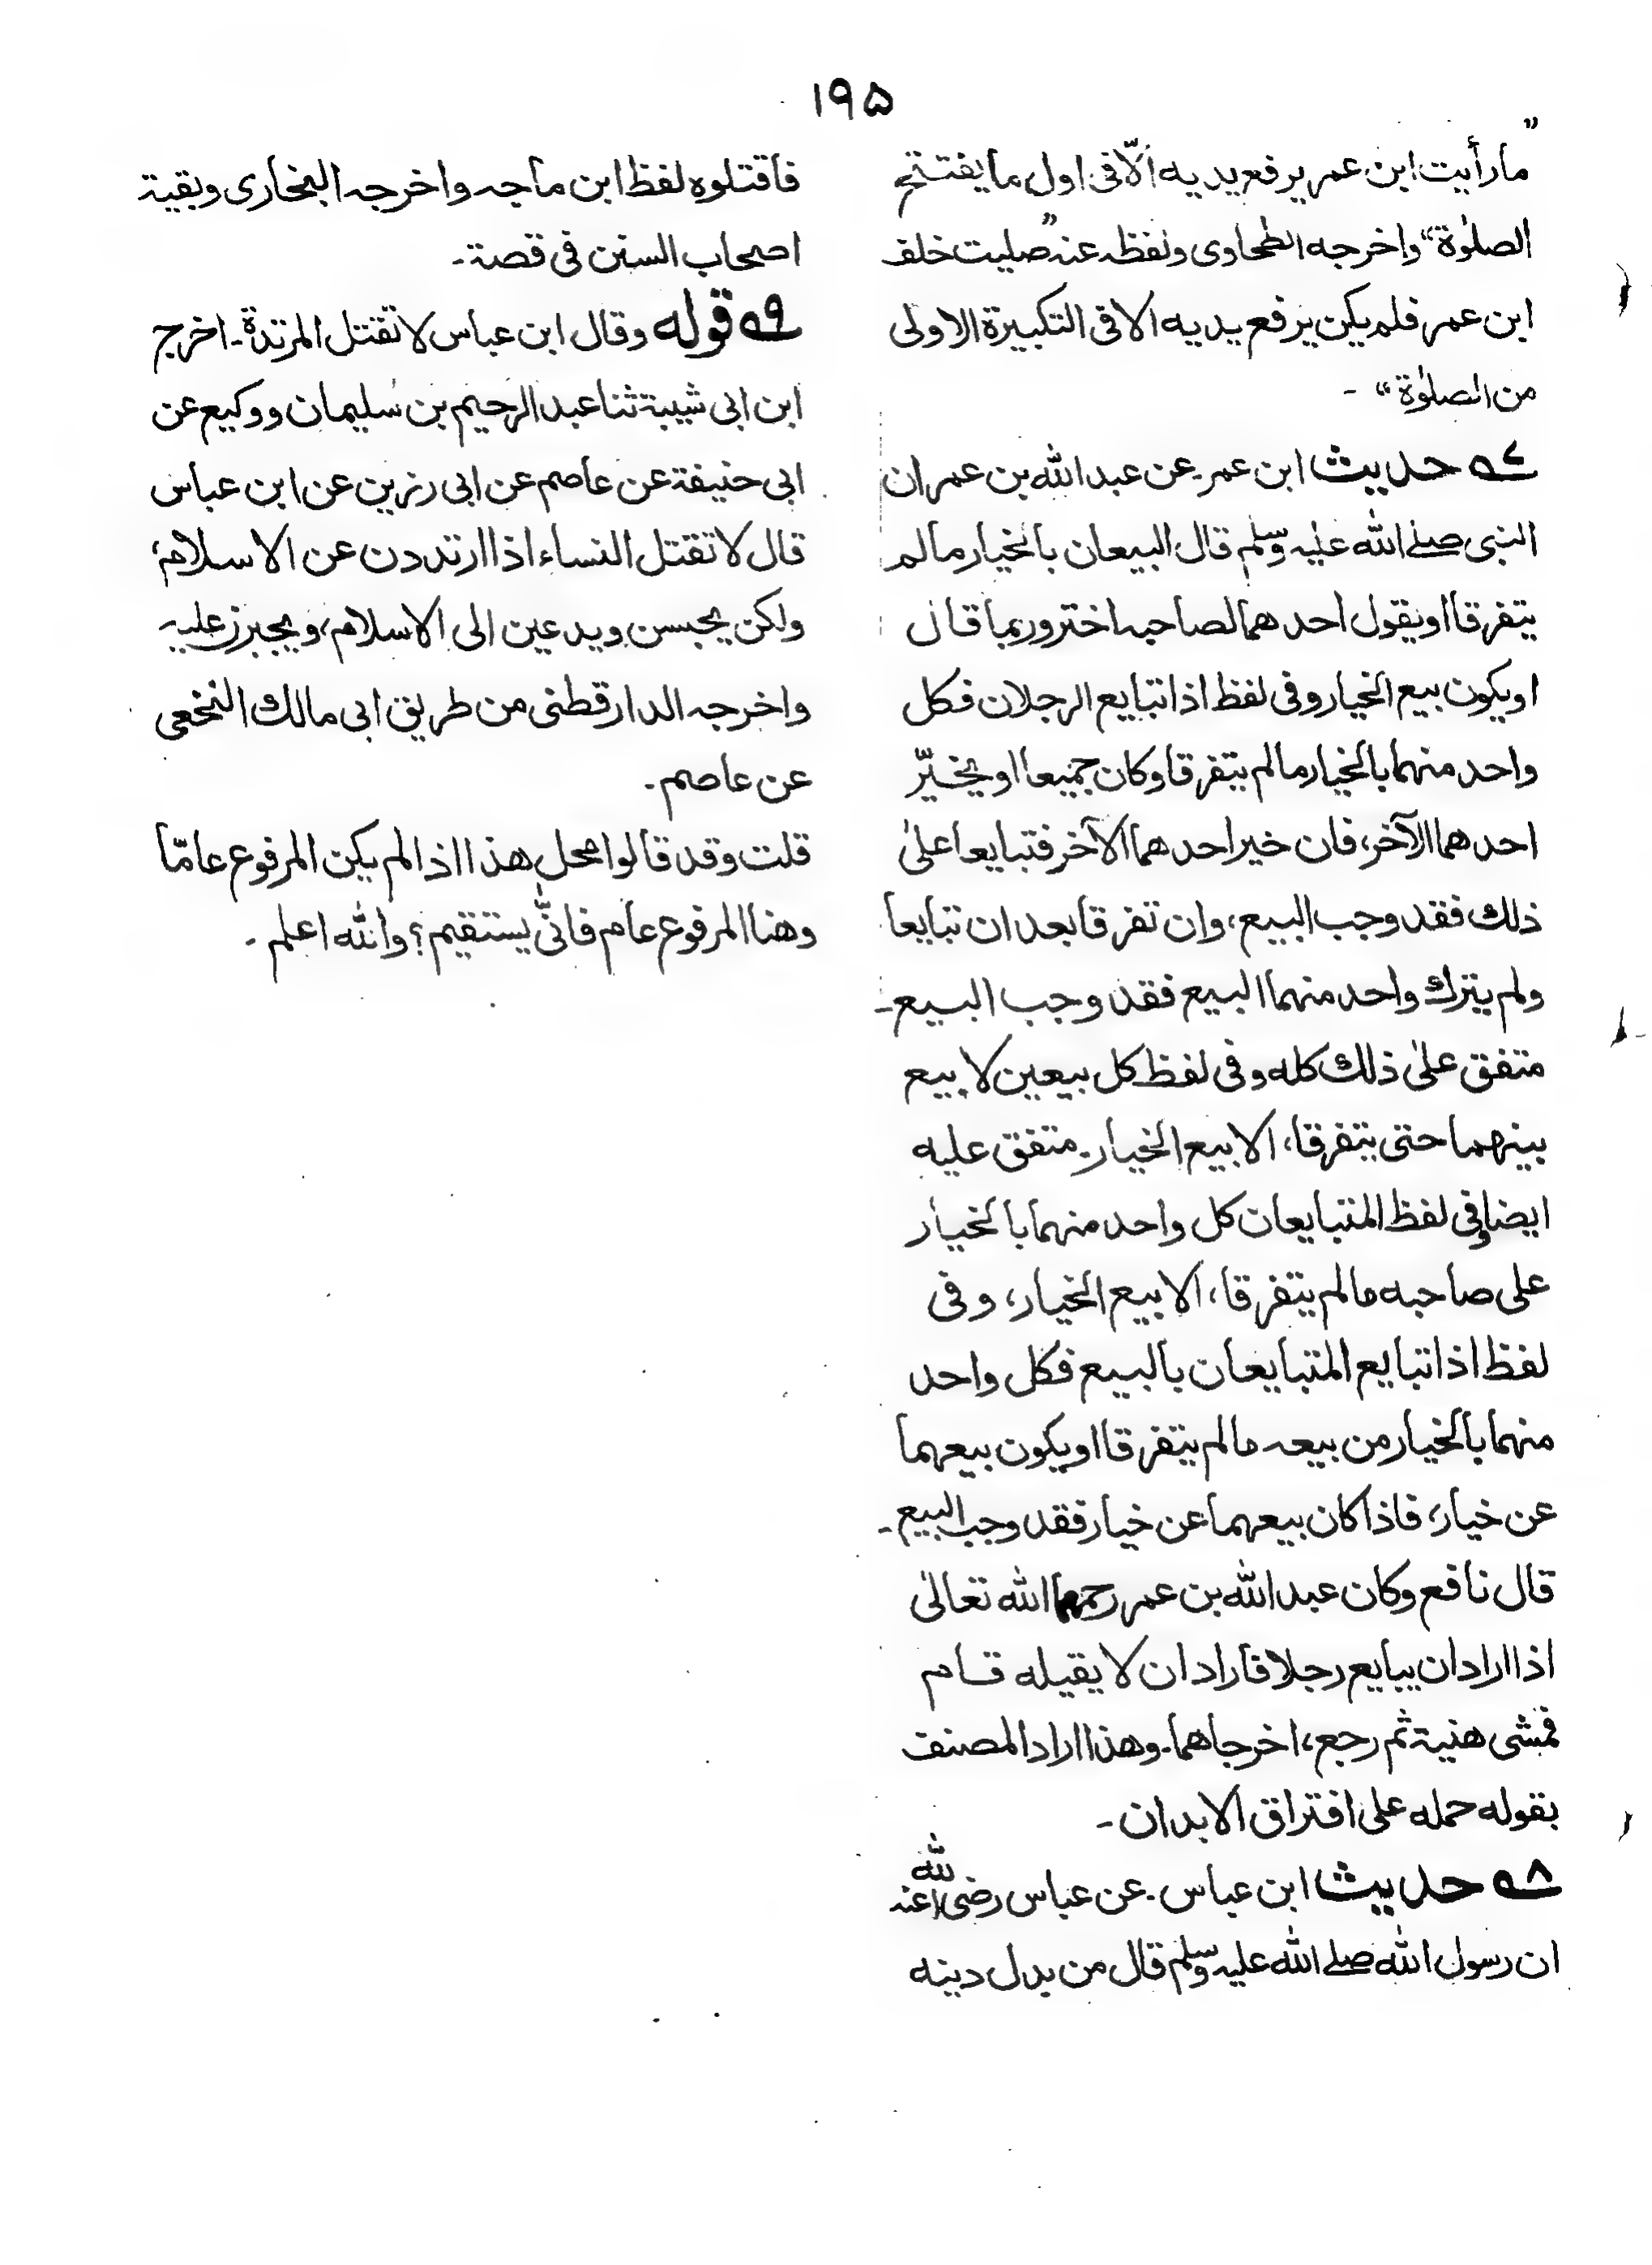 ۱۹۵
”ما رأيت ابن عمر يرفع يديه الّا فى اول ما يفتتح
الصلوٰة“ واخرجه الطحاوى ولفظه عنه ”صليت خلف
ابن عمر فلم يكن يرفع يديه الا فى التكبيرة الاولى
من الصلوٰة“ -
۷ حديث ابن عمر۔ عن عبد الله بن عمران
النبى صلے الله عليه وسلم قال البيعان بالخيار مالم
يتفرقا او يقول احدهما لصاحبه اختر وربما قال
او يكون بيع الخيار وفى لفظ اذا تبايع الرجلان فكل
واحد منهما بالخيار مالم يتفرقا وكان جميعا او يخيّر
احدهما الآخر، فان خير احدهما الآخر فتبايعا علىٰ
ذلك فقد وجب البيع، وان تفرقا بعد ان تبايعا
ولم يترك واحد منهما البيع فقد وجب البيع۔
متفق علىٰ ذلك كله وفى لفظ كل بيعين لا بيع
بينهما حتى يتفرقا، الا بيع الخيار۔ متفق عليه
ايضا وفى لفظ المتبايعان كل واحد منهما بالخيار
على صاحبه مالم يتفرقا، الا بيع الخيار، وفى
لفظ اذا تبايع المتبايعان بالبيع فكل واحد
منهما بالخيار من بيعه مالم يتفرقا او يكون بيعهما
عن خيار، فاذا كان بيعهما عن خيار فقد وجب البيع۔
قال نافع وكان عبد الله بن عمر رحمهما الله تعالىٰ
اذا اراد ان يبايع رجلا فاراد ان لا يقيله قام
فمشى هنية ثم رجع، اخرجاهما۔ وهذا اراد المصنف
بقوله حمله على افتراق الابدان۔
۸ حديث ابن عباس۔ عن عباس رضى الله عنه
ان رسول الله صلے الله عليه وسلم قال من بدل دينه
فاقتلوه لفظ ابن ماجه واخرجه البخارى وبقية
اصحاب السنن فى قصة۔
۹ قوله وقال ابن عباس لا تقتل المرتدة۔ اخرج
ابن ابى شيبة ثنا عبد الرحيم بن سليمان ووكيع عن
ابى حنيفة عن عاصم عن ابى رزين عن ابن عباس
قال لا تقتل النساء اذا ارتددن عن الاسلام،
ولكن يحبسن ويدعين الى الاسلام، ويجبرن عليه
واخرجه الدارقطنى من طريق ابى مالك النخعى
عن عاصم۔
قلت وقد قالوا محل هذا اذا لم يكن المرفوع عامّا
وهنا المرفوع عام فانّٰى يستقيم؟ والله اعلم۔